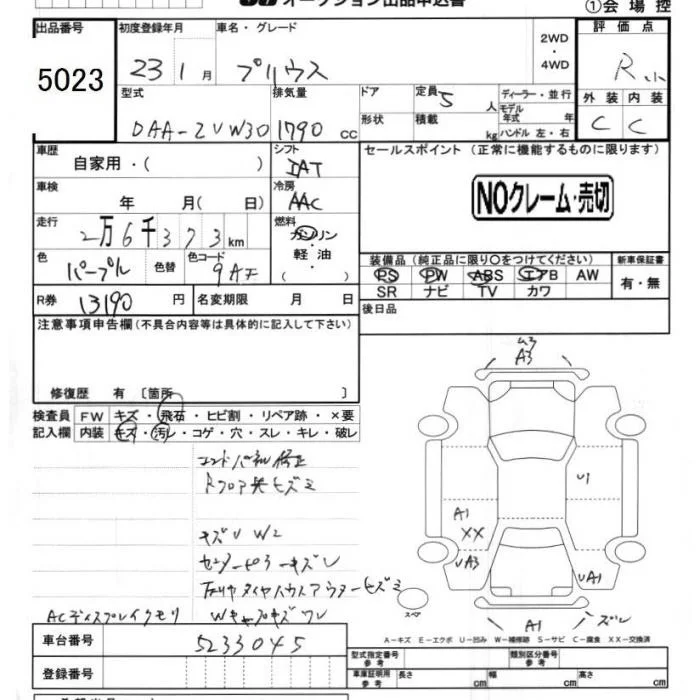 オークション出品申込書
①会場控
出品番号 初度登録年月 車名・グレード 評価点
5023 23 1月 プリウス 2WD・4WD R小
型式 排気量 ドア 定員 5人 ディーラー・並行 外装 内装
DAA-ZVW30 1790cc 形状 積載 kg モデル年式 年 C C
ハンドル 左・右
車歴 シフト セールスポイント(正常に機能するものに限ります)
自家用・( ) IAT
車検 冷房 NOクレーム・売切
年 月( 日) AAC
走行 燃料
2万6千373km ガソリン・軽油・( )
色 色替 色コード 装備品(純正品に限り○をつけてください) 新車保証書
パープル 9AF PS PW ABS エアB AW 有・無
R券 13190円 名変期限 月 日 SR ナビ TV カワ
注意事項申告欄(不具合内容等は具体的に記入して下さい) 後日品
修復歴 有 〔箇所 〕
A3
検査員 FW キズ・飛石・ヒビ割・リペア跡・×要
記入欄 内装 キズ・汚レ・コゲ・穴・スレ・キレ・破レ
コアサポ修正
U1
A1
XX
キズU W2
A3
UA1
ACディスプレイクモリ Wキャップキズワレ
スペア
A1 ズレ
A-キズ E-エクボ U-凹み W-補修跡 S-サビ C-腐食 XX-交換済
車台番号 5233045 型式指定番号 参考 類別区分番号 参考
登録番号 車庫証明用 参考 長さ cm 幅 cm 高さ cm